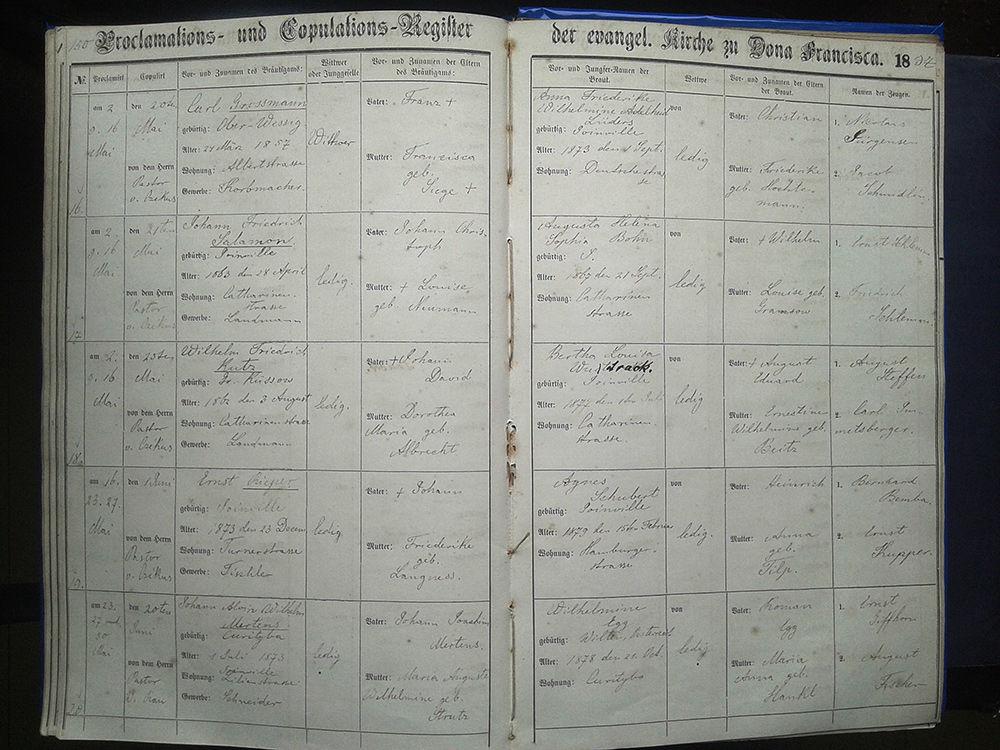 150 Proclamations- und Copulations-Register
der evangel. Kirche zu Dona Francisca. 18
No. Proclamirt Copulirt Vor- und Zunamen des Bräutigams: Wittwer oder Junggeselle Vor- und Zunamen der Eltern des Bräutigams:
Vor- und Jungfer-Namen der Braut. Wittwe Vor- und Zunamen der Eltern der Braut. Namen der Zeugen.
16.
am 2
9. 16
Mai
den 20ten
Mai
von dem Herrn
Pastor
Carl Grossmann
gebürtig:
Alter: 21 März 1857
Wohnung: Albertstrasse
Gewerbe: Korbmacher.
Wittwer
Vater: Franz +
Mutter: Franzisca
geb.
Siege +
Anna Friederike
Wilhelmine Adelheid
Lüders
gebürtig: Joinville
Alter: 1873 den 1 Sept.
Wohnung: Deutschestras
se
von
ledig
Vater: Christian
Mutter: Friederike
geb.
mann.
1. Nicolaus
Jürgensen
2. Jacob
Schmidlin
17
am 2.
9. 16
Mai
den 21ten
Mai
von dem Herrn
Pastor
Johann Friedrich
Salamon
gebürtig: Joinville
Alter: 1863 den 28 April
Wohnung: Catharinen-
strasse
Gewerbe: Landmann
ledig.
Vater: Johann Chris-
toph
Mutter: + Louise
geb. Neumann
Augusta Helena
Sophia Bohn
gebürtig: J.
Alter: 1869 den 21 Sept.
Wohnung: Catharinen
strasse
von
ledig
Vater: + Wilhelm
Mutter: Louise geb.
Gramsow
1. Ernst
2. Friedrich
18.
am 2.
9. 16
Mai
den 23ten
Mai
von dem Herrn
Pastor
Wilhelm Friedrich
Kutz
gebürtig: Gr. Küssow
Alter: 1862 den 3 August
Wohnung: Catharinenstrasse
Gewerbe: Landmann
ledig.
Vater: + Johann
David
Mutter: Dorothea
Maria geb.
Albrecht
Bertha Louisa
gebürtig: Joinville
Alter:
Wohnung: Catharinen-
strasse.
von
ledig
Vater: + August
Eduard
Mutter: Ernestine
Wilhelmine geb.
Beitz
1. August
Steffen
2. Carl
metsberger.
19.
am 16.
23. 27.
Mai
den 1 Juni
von dem Herrn
Pastor
Ernst Rieper
gebürtig: Joinville
Alter: 1873 den 23 Decem
Wohnung: Turnerstrasse
Gewerbe: Tischler
ledig
Vater: + Johann
Mutter: Friederike
geb.
Langness.
Agnes
Schubert
gebürtig: Joinville
Alter: 1879 den 15ten Februar
Wohnung: Hamburger-
strasse
von
ledig.
Vater: Heinrich
Mutter: Anna
geb.
Filp.
1. Bernhard
Bemba
2. Ernst
Kupper.
20
am 23.
27 und
30
Mai
den 20ten
Juni
von dem Herrn
Pastor
Johann Alwin Wilhelm
Mertens
gebürtig: Curityba
Alter: 1 Juli 1873
Wohnung: Joinville
Lilienstrasse
Gewerbe: Schneider
ledig
Vater: Johann Joachim
Mertens.
Mutter: Maria Auguste
Wilhelmine geb.
Strutz
Wilhelmine
Egg
gebürtig:
Alter: 1878 den 21. Oct.
Wohnung: Curityba
von
ledig
Vater: Roman
Egg
Mutter: Maria
Anna geb.
Hankl
1. Ernst
2. August
Fischer